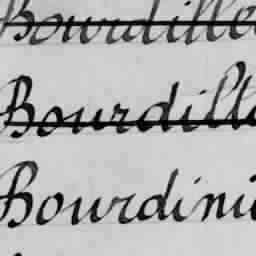 Bourdille
Bourdilla
Bourdini